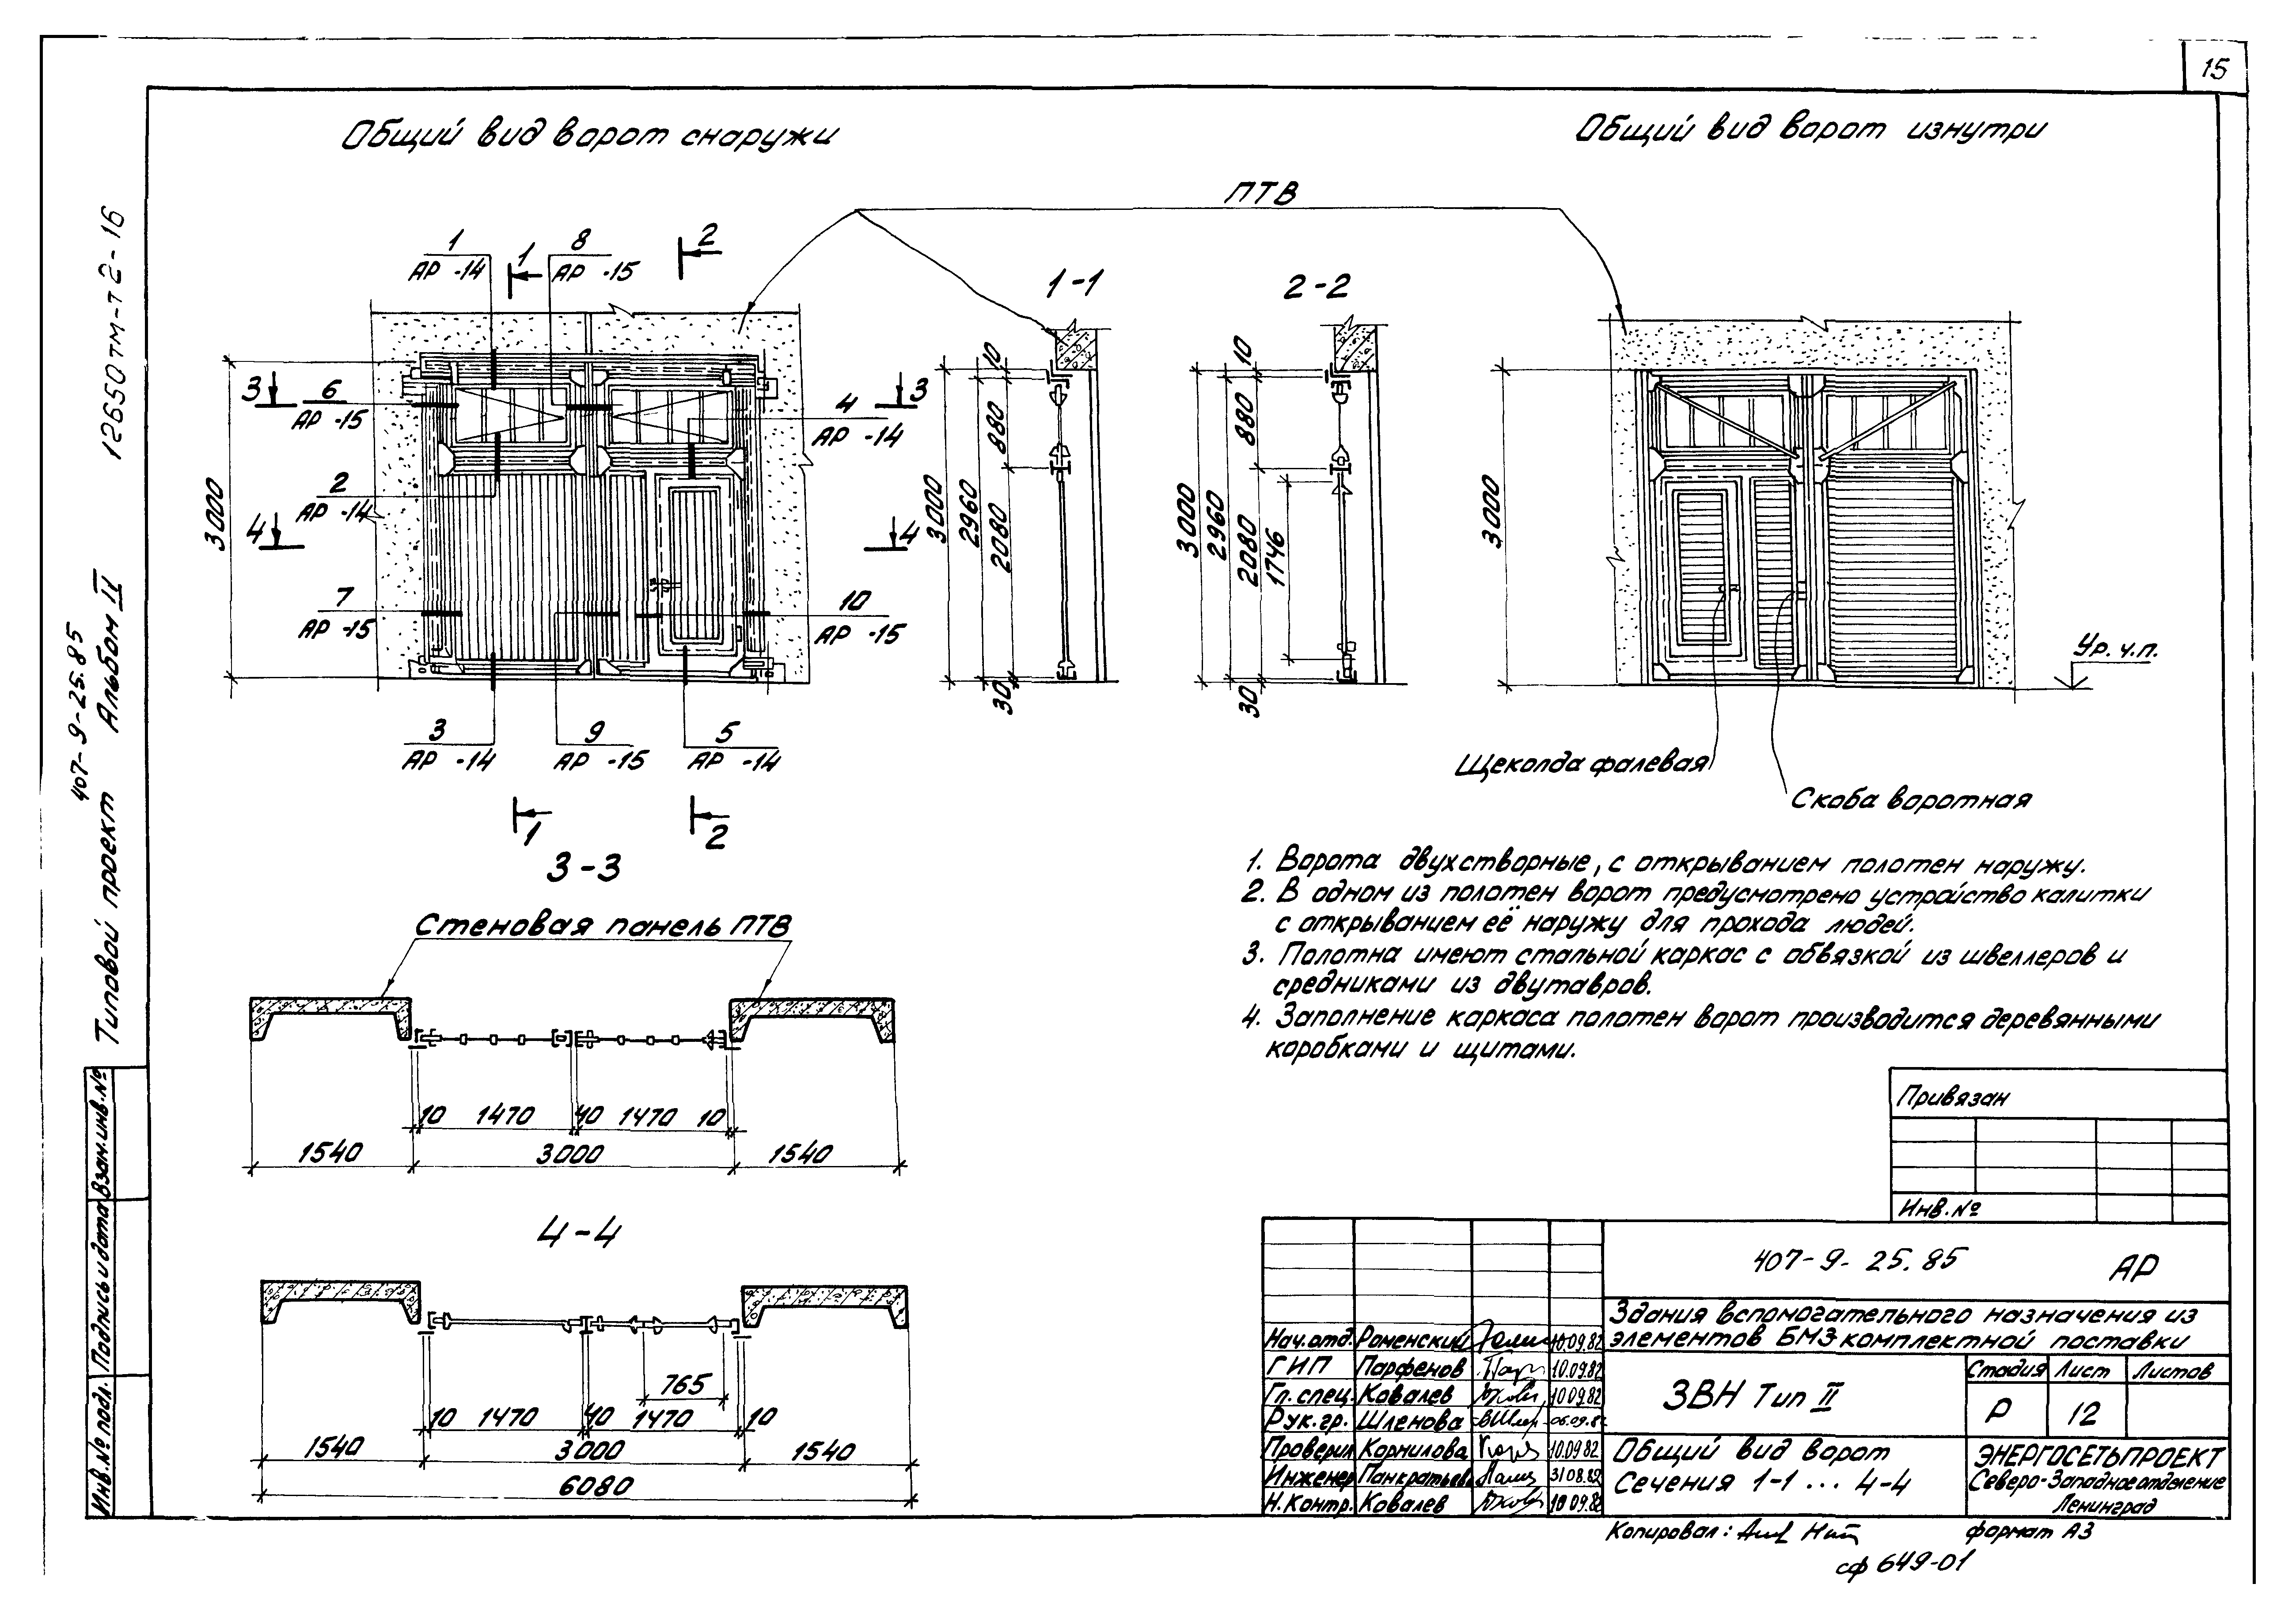 15
Общий вид ворот снаружи
Общий вид ворот изнутри
ПТВ
1
АР -14
1
8
АР -15
2
1-1
2-2
3
6
АР -15
4
АР -14
3
2
АР -14
4
4
7
АР -15
10
АР -15
3
АР -14
9
АР -15
5
АР -14
1
2
3000
10
880
3000
2960
2080
30
10
880
3000
2960
2080
1746
30
3000
Ур. ч.п.
Щеколда фалевая
Скоба воротная
3-3
Стеновая панель ПТВ
10 1470 40 1470 10
1540 3000 1540
4-4
765
10 1470 40 1470 10
1540 3000 1540
6080
1. Ворота двухстворные, с открыванием полотен наружу.
2. В одном из полотен ворот предусмотрено устройство калитки
с открыванием её наружу для прохода людей.
3. Полотна имеют стальной каркас с обвязкой из швеллеров и
средниками из двутавров.
4. Заполнение каркаса полотен ворот производится деревянными
коробками и щитами.
Привязан
Инв.№
407-9-25.85 АР
Здания вспомогательного назначения из
элементов БМЗ комплектной поставки
Нач.отд. Роменский 10.09.82
ГИП Парфенов 10.09.82
Гл.спец. Ковалев 10.09.82
Рук.гр. Шленова 06.09.82
Проверил Корнилова 10.09.82
Инженер Панкратьева 31.08.82
Н.Контр. Ковалев 10.09.82
ЗВН Тип II
Стадия Лист Листов
Р 12
Общий вид ворот
Сечения 1-1 ... 4-4
ЭНЕРГОСЕТЬПРОЕКТ
Северо-Западное отделение
Ленинград
Копировал:
формат А3
сф 649-01
12650тм-т2-16
407-9-25.85
Типовой проект Альбом II
Инв.№ подл. Подпись и дата Взам.инв.№